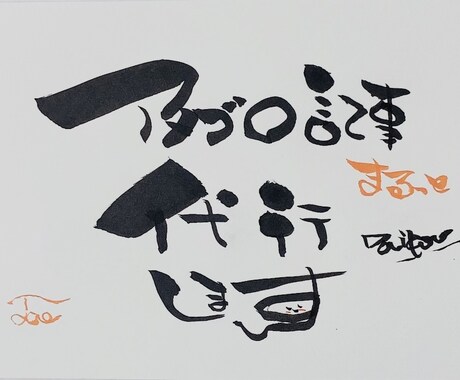 アメブロ記事
まるっと
代行
します